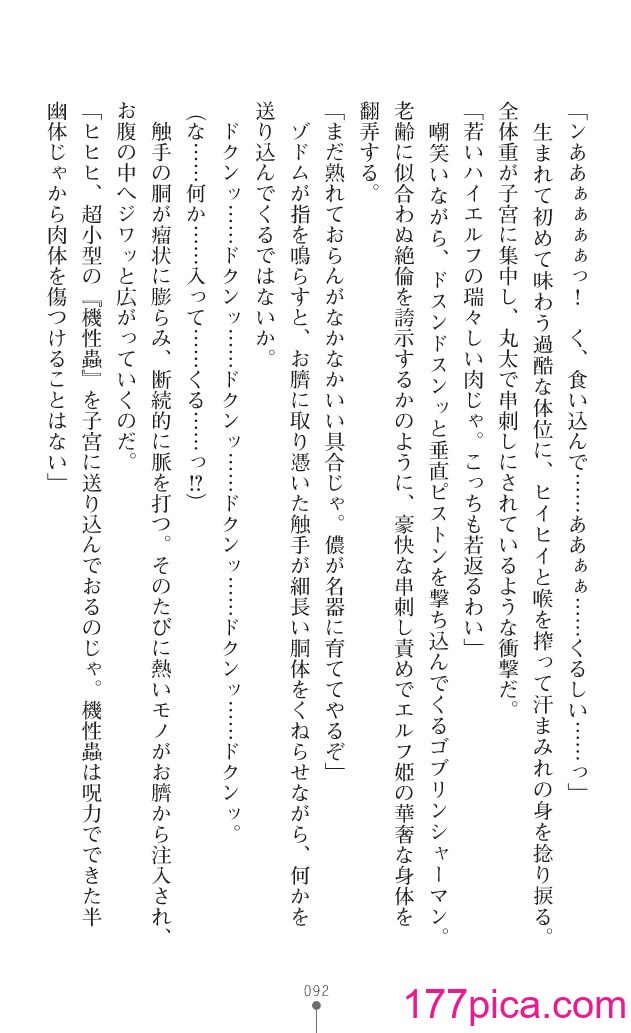 「ンああぁぁぁぁっ！　く、食い込んで……ああぁぁ……くるしい……っ」
生まれて初めて味わう過酷な体位に、ヒイヒイと喉を搾って汗まみれの身を捻り捩る。
全体重が子宮に集中し、丸太で串刺しにされているような衝撃だ。
「若いハイエルフの瑞々しい肉じゃ。こっちも若返るわい」
嘲笑いながら、ドスンドスンッと垂直ピストンを撃ち込んでくるゴブリンシャーマン。
老齢に似合わぬ絶倫を誇示するかのように、豪快な串刺し責めでエルフ姫の華奢な身体を
翻弄する。
「まだ熟れておらんがなかなかいい具合じゃ。儂が名器に育ててやるぞ」
ゾドムが指を鳴らすと、お臍に取り憑いた触手が細長い胴体をくねらせながら、何かを
送り込んでくるではないか。
ドクンッ……ドクンッ……ドクンッ……ドクンッ……ドクンッ。
（な……何か……入って……くる……っ⁉）
触手の胴が瘤状に膨らみ、断続的に脈を打つ。そのたびに熱いモノがお臍から注入され、
お腹の中へジワッと広がっていくのだ。
「ヒヒヒ、超小型の『機性蟲』を子宮に送り込んでおるのじゃ。機性蟲は呪力でできた半
幽体じゃから肉体を傷つけることはない」
092
177pica.com